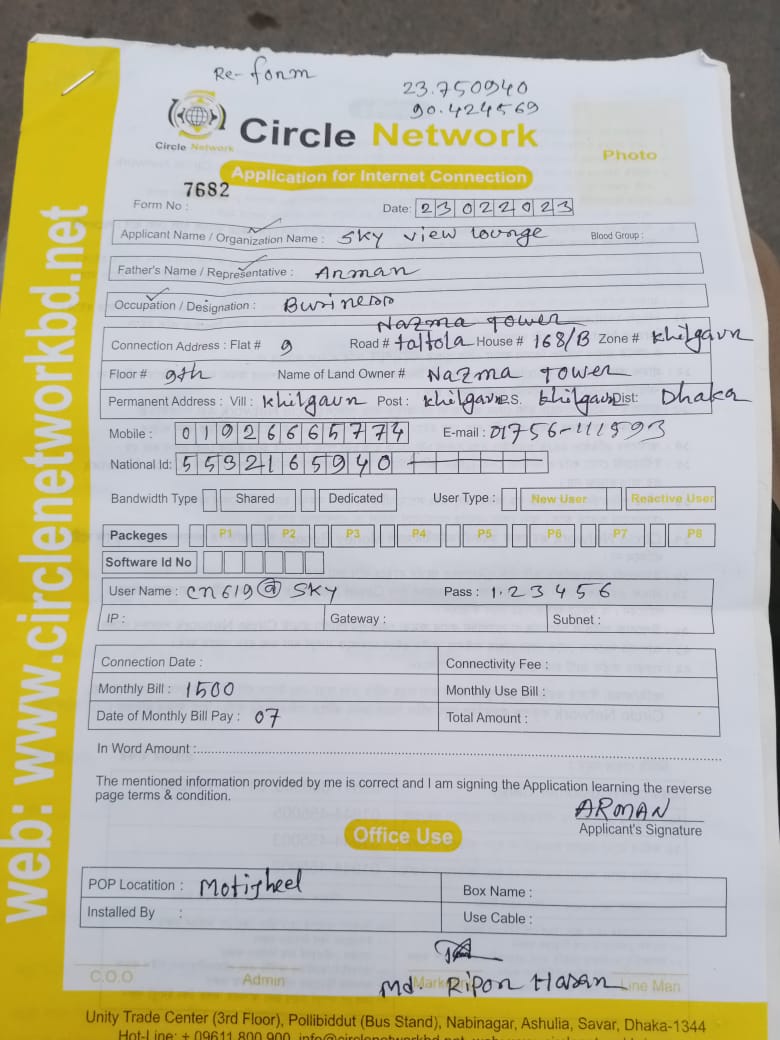 Re-form
23.750940
90.424569
Circle Network
Circle Network
Photo
Application for Internet Connection
7682
Form No :
Date: 23022023
Applicant Name / Organization Name : Sky view lounge Blood Group :
Father's Name / Representative : Arman
Occupation / Designation : Business
Nazma tower
Connection Address : Flat # 9 Road # taltola House # 168/B Zone # Khilgaun
Floor # 9th Name of Land Owner # Nazma tower
Permanent Address : Vill : Khilgaun Post : Khilgaun P.S. Khilgaun Dist: Dhaka
Mobile : 01926665774 E-mail : 01756-111593
National Id: 5532165940
Bandwidth Type Shared Dedicated User Type : New User Reactive User
Packeges P1 P2 P3 P4 P5 P6 P7 P8
Software Id No
User Name : cn619@sky Pass : 123456
IP : Gateway : Subnet :
Connection Date : Connectivity Fee :
Monthly Bill : 1500 Monthly Use Bill :
Date of Monthly Bill Pay : 07 Total Amount :
In Word Amount :
The mentioned information provided by me is correct and I am signing the Application learning the reverse
page terms & condition.
ARMAN
Applicant's Signature
Office Use
POP Locatition : Motijheel Box Name :
Installed By : Use Cable :
Md. Ripon Hasan
C.O.O Admin Marketing Line Man
Unity Trade Center (3rd Floor), Pollibiddut (Bus Stand), Nabinagar, Ashulia, Savar, Dhaka-1344
Hot-Line: + 09611 800 900,
web: www.circlenetworkbd.net